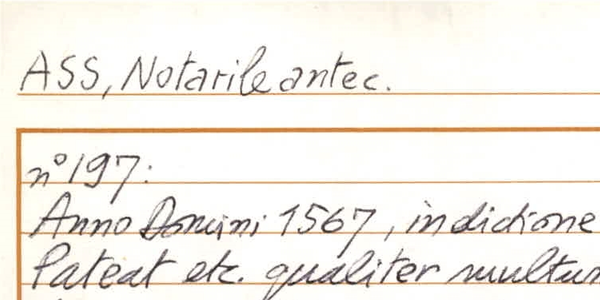 ASS, Notarile antec.
n° 197:
Anno Domini 1567, indictione
Pateat etc. qualiter multum